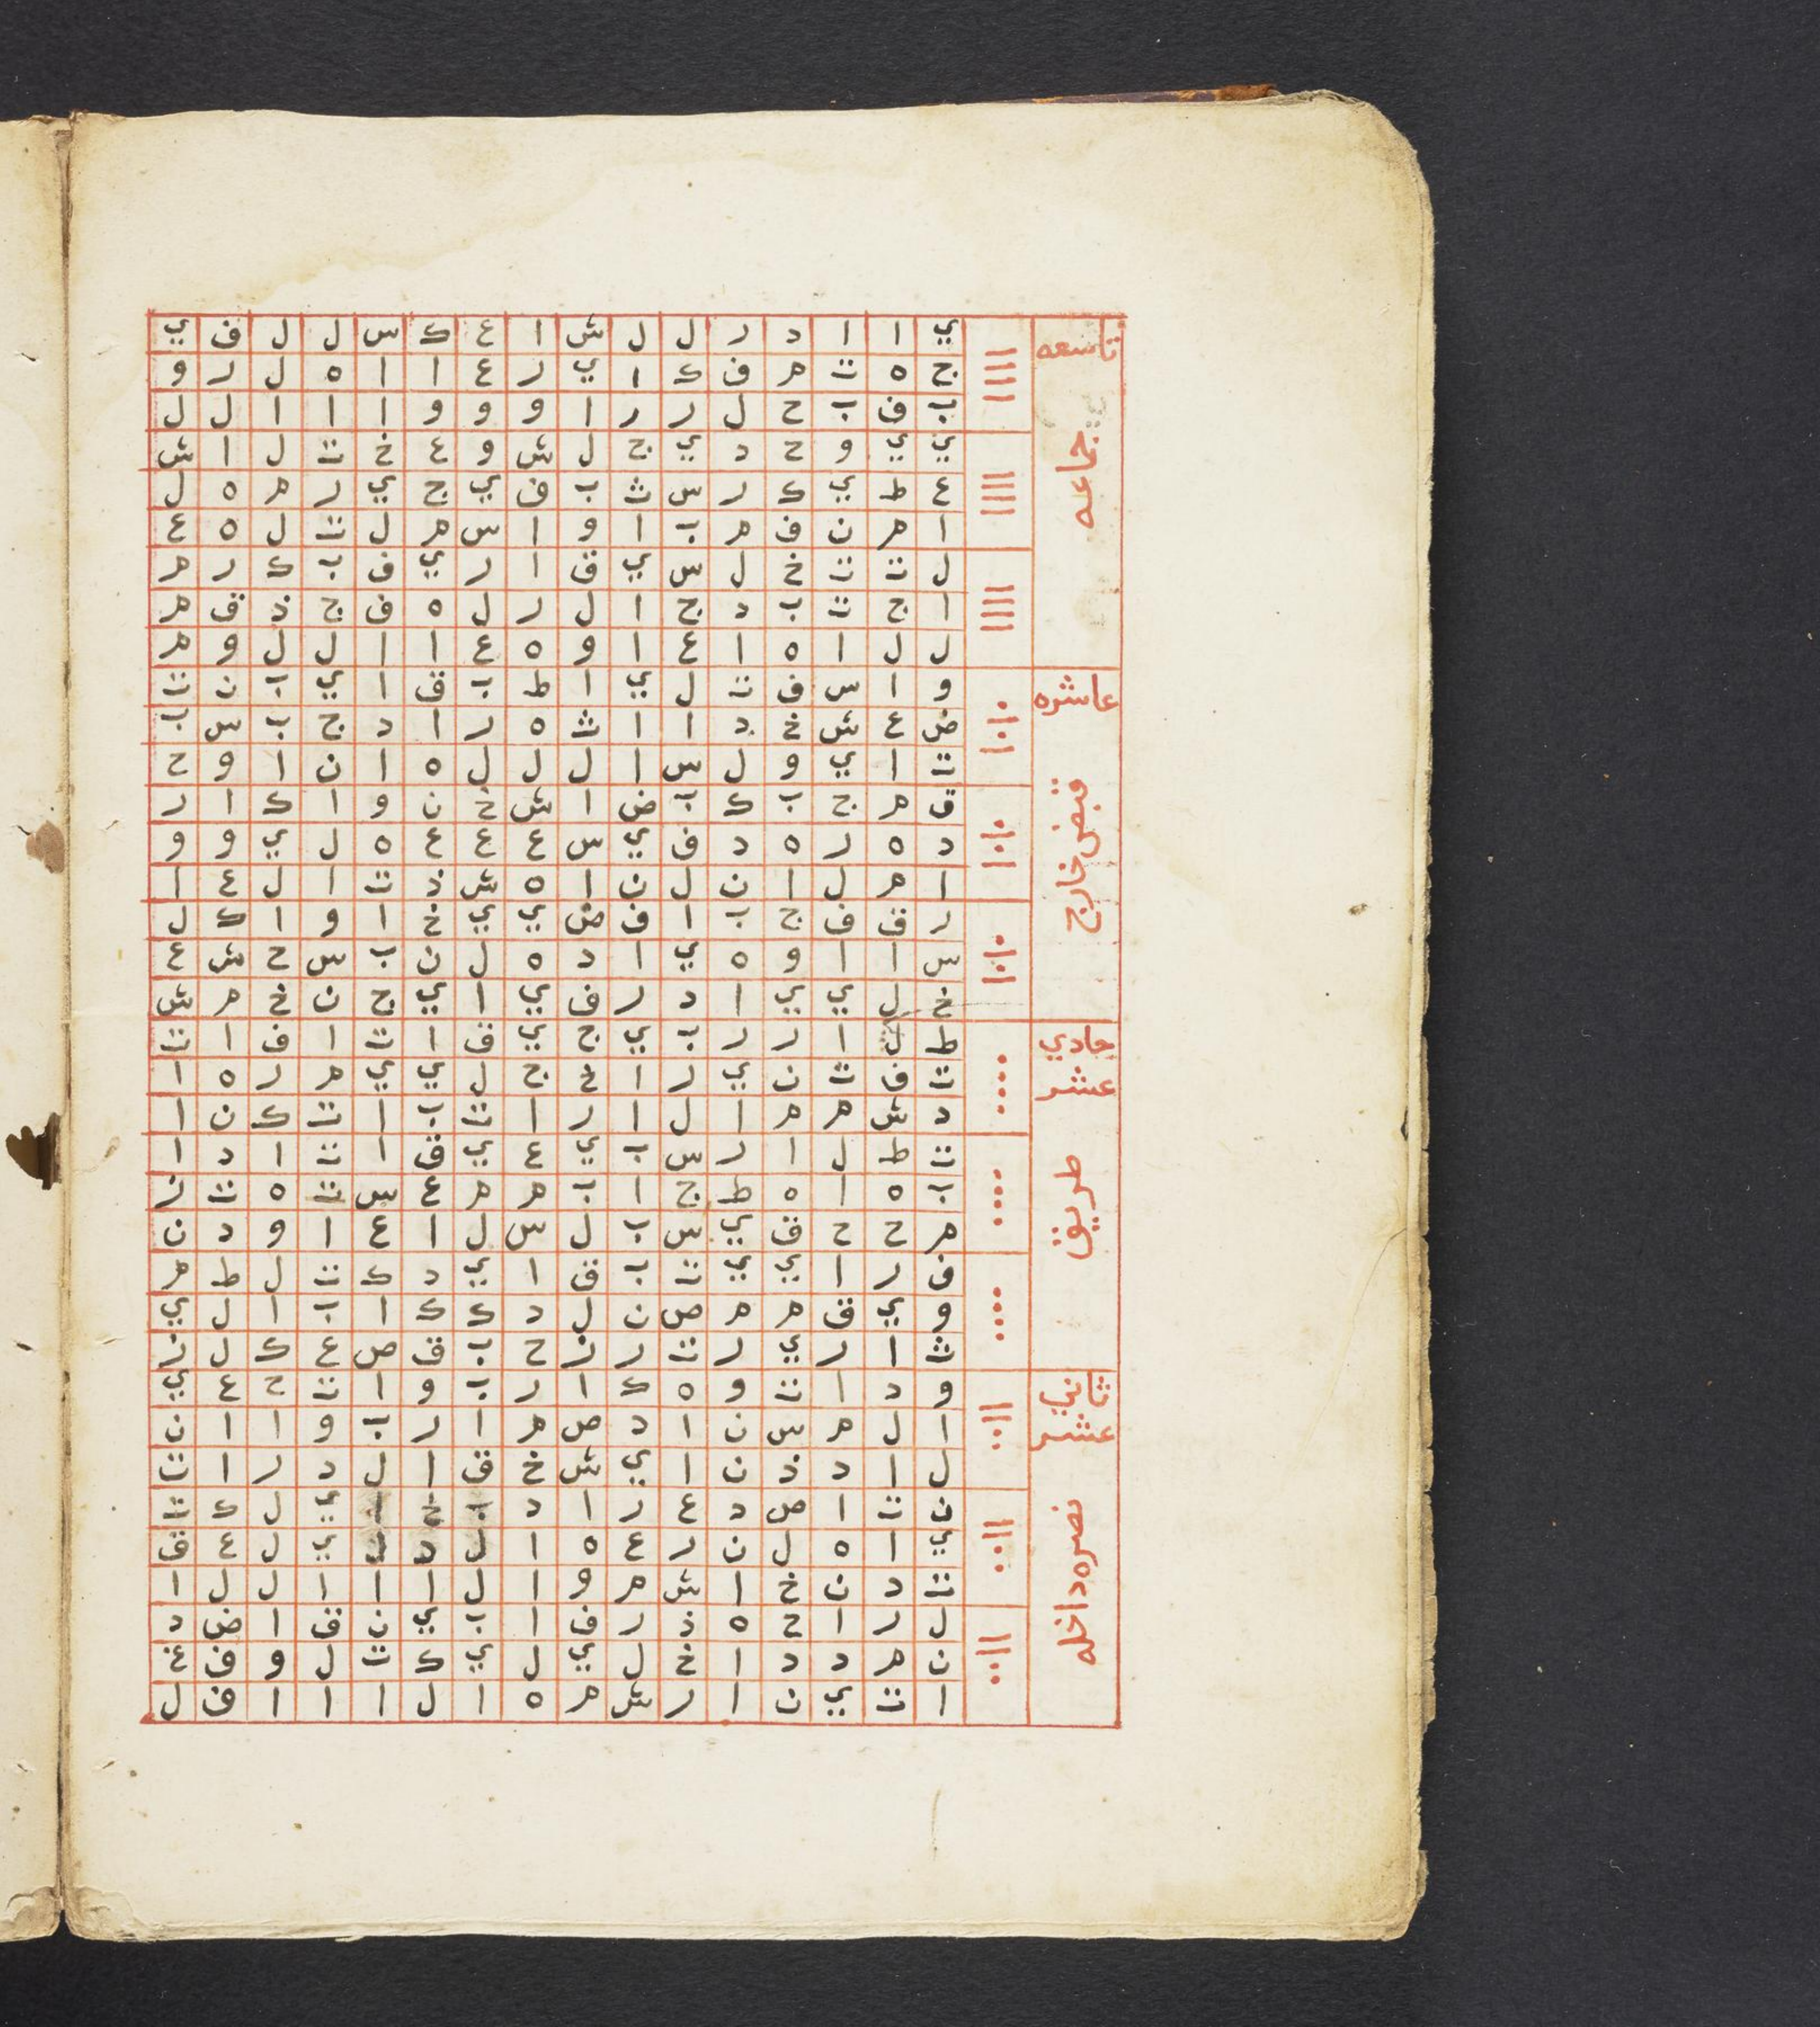 تاسعه
جماعه
ي ا ا د ر ل ل ش ا ع ك س ل ل ف ي
ج ه ت م ف ك ا ي ر ع ا ا ه ل ر و
ب ف ب ح ل ر ر ا و و و ا ا ا ل ل
ي ي و ح د ي ج ل ش و ع خ ت ل ا ش
ع ط ي ك ر س ث ب ف ي ج ي ر م ه ل
ا م ن ف م ب ا و ا س م ل ت ل ه ع
ل ت ت خ ل س ي ق ا ر ي ف ب ك ر م
ا ج ت ب د ج ا ل ر ل ه ف ج ذ ق م
ل ل ا ه ا ع ا و ه ع ا ا ل ل و م
عاشره
قبض خارج
و ا س ف ت ل ي ا ط ب ق ا ي ب ن ت
ض ع ش خ د ا ا ث ه ر ا د ج ب س ب
ت ا ي و ل س ا ل ل ل ه ا ن ا و ح
ق م ج ب ك ب ض ا ش خ ن و ا ك ا ر
د ه ر ه د ف ي س ع ع ع ه ل ي و و
ا م ل ا ن ل ن ا ه ش ذ ت ا ل ع ا
ر ق ف ج ب ا ف ض ي ي خ ا و ا ك ل
س ا ا و ه ي ا د ه ل ن ب س ح ش ع
خ ل ي ي ا د ر ف ي ا ي ج ن خ م ش
حادي
عشر
طريق
ط ل ا ر ر ب ي ج ي ق ا ت ا ف ا ت
ت ف ث ن ي ر ا خ ج ل ي ي م ر ه ا
د ش م م ا ل ا ر ا ت ب ا ت ك ن ا
ت ط ل ا ر س ب ي ع ي ق ا ت ا د ا
ب ه ا ه ط ج ا ب م م ع س ت ه ث ز
م ح ح ق ي س ب ل س ل ا ع ا و د ن
ف ر ا ي ي ت ب ق ا ي د ك ت ل ط م
و ي ق م م ص ن ل د ك ك ا ب ا ل ي
ث ا ر ي ر ت ر ز ح ب ق ص ع ك ل ز
ثاني
عشر
نصره داخله
و د ا ت و ه ك ا ر ب و ا ت ح ع ي
ا ل م س ن ا د ص م ا ر ب و ا ا ن
ل ا د ذ ن ا ي ش خ ق ا ل د ر ا ت
ن ت ا ص د ع ر ا د ب خ ا ي ل ك ت
ي ا ه ل ن ر ع ه ا ل د ي ل ع ق
ت د ن خ ا ش م و ا ل ا ا ا ل ل ا
ل ر ا ح ه ذ ر ف ا ب ي ن ق ا ض د
ن م د د ا خ ل ي ل ي ك ث ل و ف غ
ا ت ي ن ا ر ش م ه ا ل ا ا ا ف ل